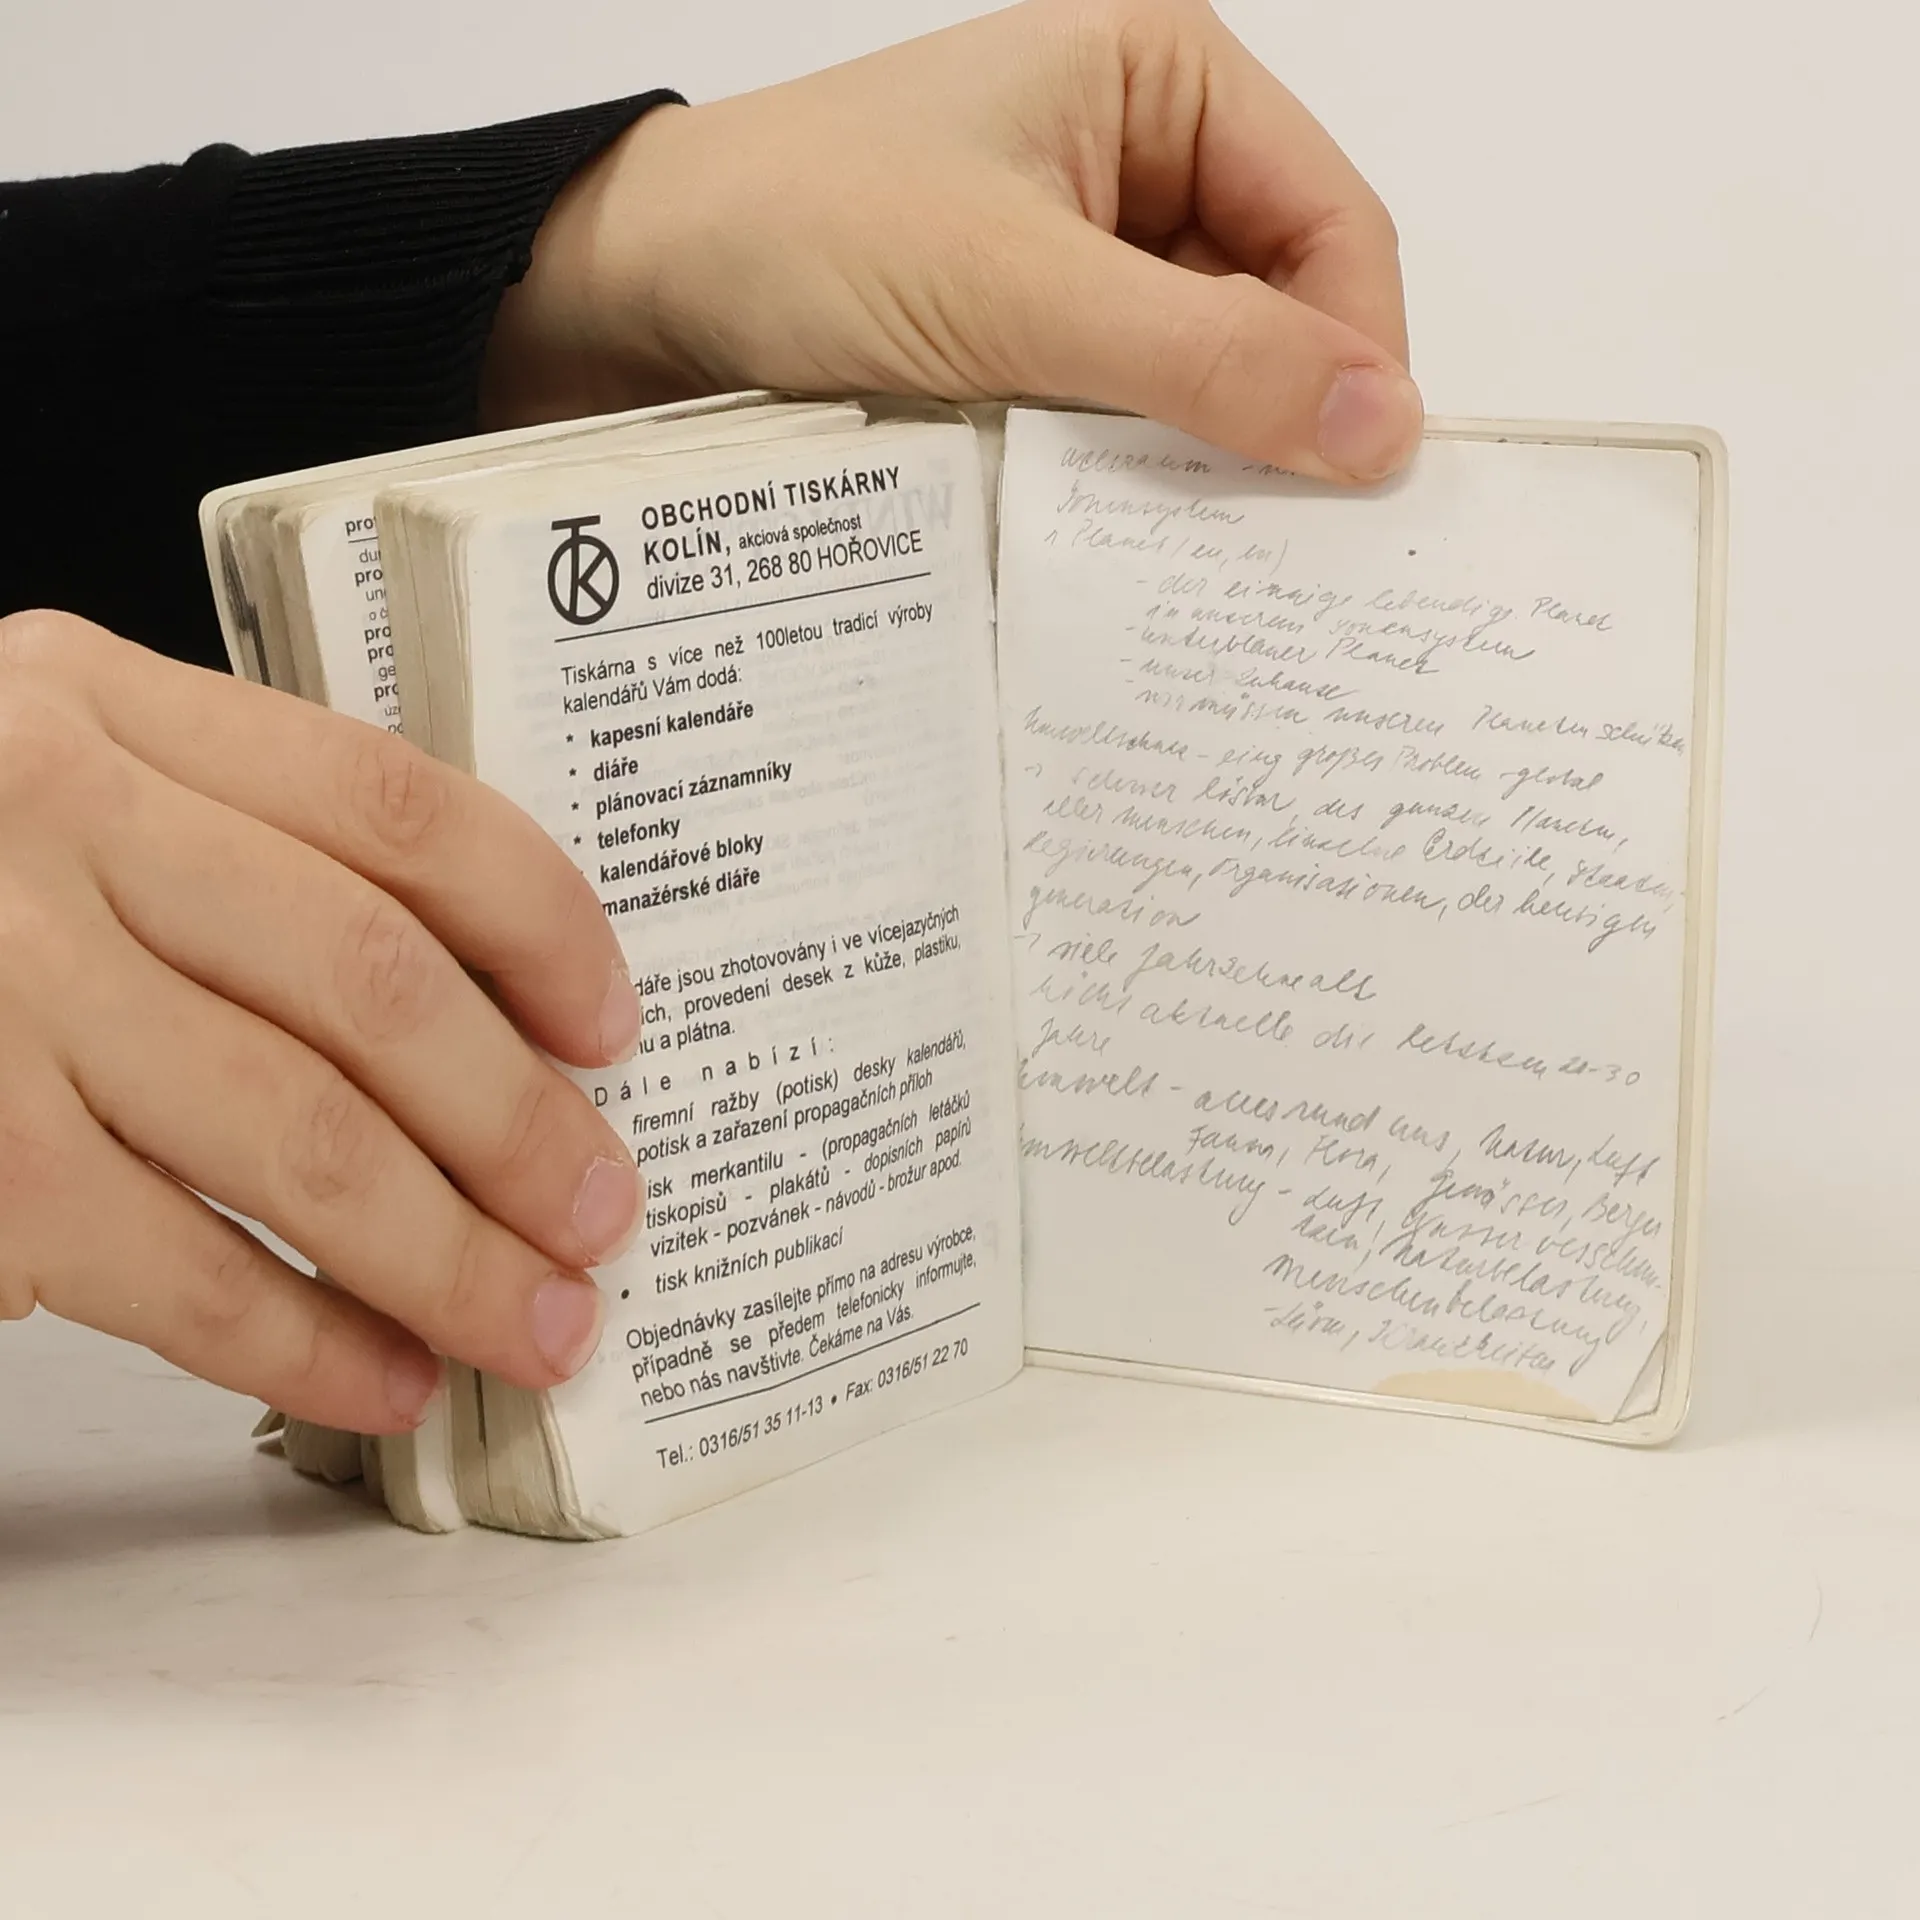 pro
du
pro
un
o č
pro
pro
ge
pro
úz
OBCHODNÍ TISKÁRNY
KOLÍN, akciová společnost
divize 31, 268 80 HOŘOVICE
Tiskárna s více než 100letou tradicí výroby
kalendářů Vám dodá:
* kapesní kalendáře
* diáře
* plánovací záznamníky
* telefonky
kalendářové bloky
manažérské diáře
dáře jsou zhotovovány i ve vícejazyčných
ích, provedení desek z kůže, plastiku,
nu a plátna.
Dále nabízí:
firemní ražby (potisk) desky kalendářů,
potisk a zařazení propagačních příloh
isk merkantilu - (propagačních letáčků
tiskopisů - plakátů - dopisních papírů
vizitek - pozvánek - návodů - brožur apod.
• tisk knižních publikací
Objednávky zasílejte přímo na adresu výrobce,
případně se předem telefonicky informujte,
nebo nás navštivte. Čekáme na Vás.
Tel.: 0316/51 35 11-13 • Fax: 0316/51 22 70
Sonensystem
Planet
- der einzige lebendige Planet
in unserem sonensystem
- Planet
- unser Zuhause
- wir müssen unseren Planeten schützen
Umweltschutz - eing großes Problem - global
des ganzen Planeten,
aller menschen, einzelne Erdteile, Staaten,
Regierungen, Organisationen, der heutigen
generation
→ viele Jahrzehne alt
nicht aktuelle die 20-30
Jahre
Umwelt - alles rund uns, Natur, Luft
Fauna, Flora, Gewässer, Berge
Umweltbelastung - Luft, Wasser
Naturbelastung,
menschenbelastung
- Lärm, Krankheiten